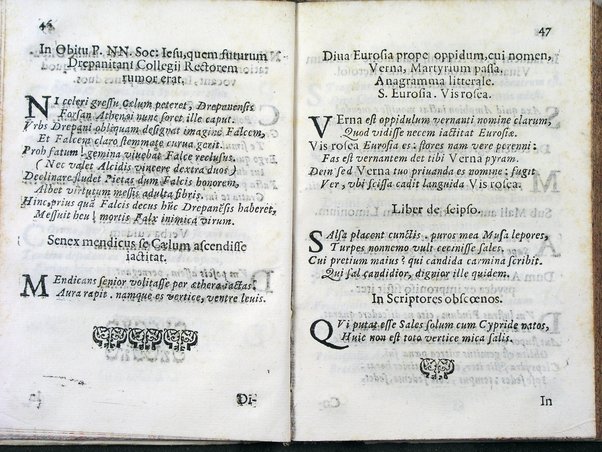 46
In Obitu P. NN. Soc: Iesu, quem futurum
Drepanitani Collegij Rectorem
rumor erat.
NI celeri gressu Cælum peteret, Drepanensis
Forsan Athenæi nunc foret ille caput.
Vrbs Drepani obliquam designat imagine Falcem,
Et Falcem claro stemmate curua gerit.
Proh fatum! gemina viuebat Falce reclusus.
( Nec valet Alcidi vincere dextra duos )
Declinare studet Pietas dum Falcis honorem,
Albet virtutum messis adulta fibris.
Hinc, prius quā Falcis decus hūc Drepanēsis haberet,
Messuit heu! mortis Falx inimica virum.
Senex mendicus se Cælum ascendisse
iactitat.
MEndicans senior volitasse per æthera iactas:
Aura rapit. namque es vertice, ventre leuis.
Di-
47
Diua Eurosia prope oppidum, cui nomen,
Verna, Martyrium passa.
Anagramma litterale.
S. Eurosia. Vis rosea.
VErna est oppidulum vernanti nomine clarum,
Quod vidisse necem iactitat Eurosiæ.
Vis rosea Eurosia es: flores nam vere perenni:
Fas est vernantem det tibi Verna pyram.
Dein sed Verna tuo priuanda es nomine: fugit
Ver, vbi scissa cadit languida Vis rosea.
Liber de seipso.
SAlsa placent cunctis. puros mea Musa lepores,
Turpes nonnemo vult cecinisse sales.
Cui pretium maius? qui candida carmina scribit.
Qui sal candidior, dignior ille quidem.
In Scriptores obscœnos.
QVi putat esse Sales solum cum Cypride natos,
Huic non est toto vertice mica salis.
In